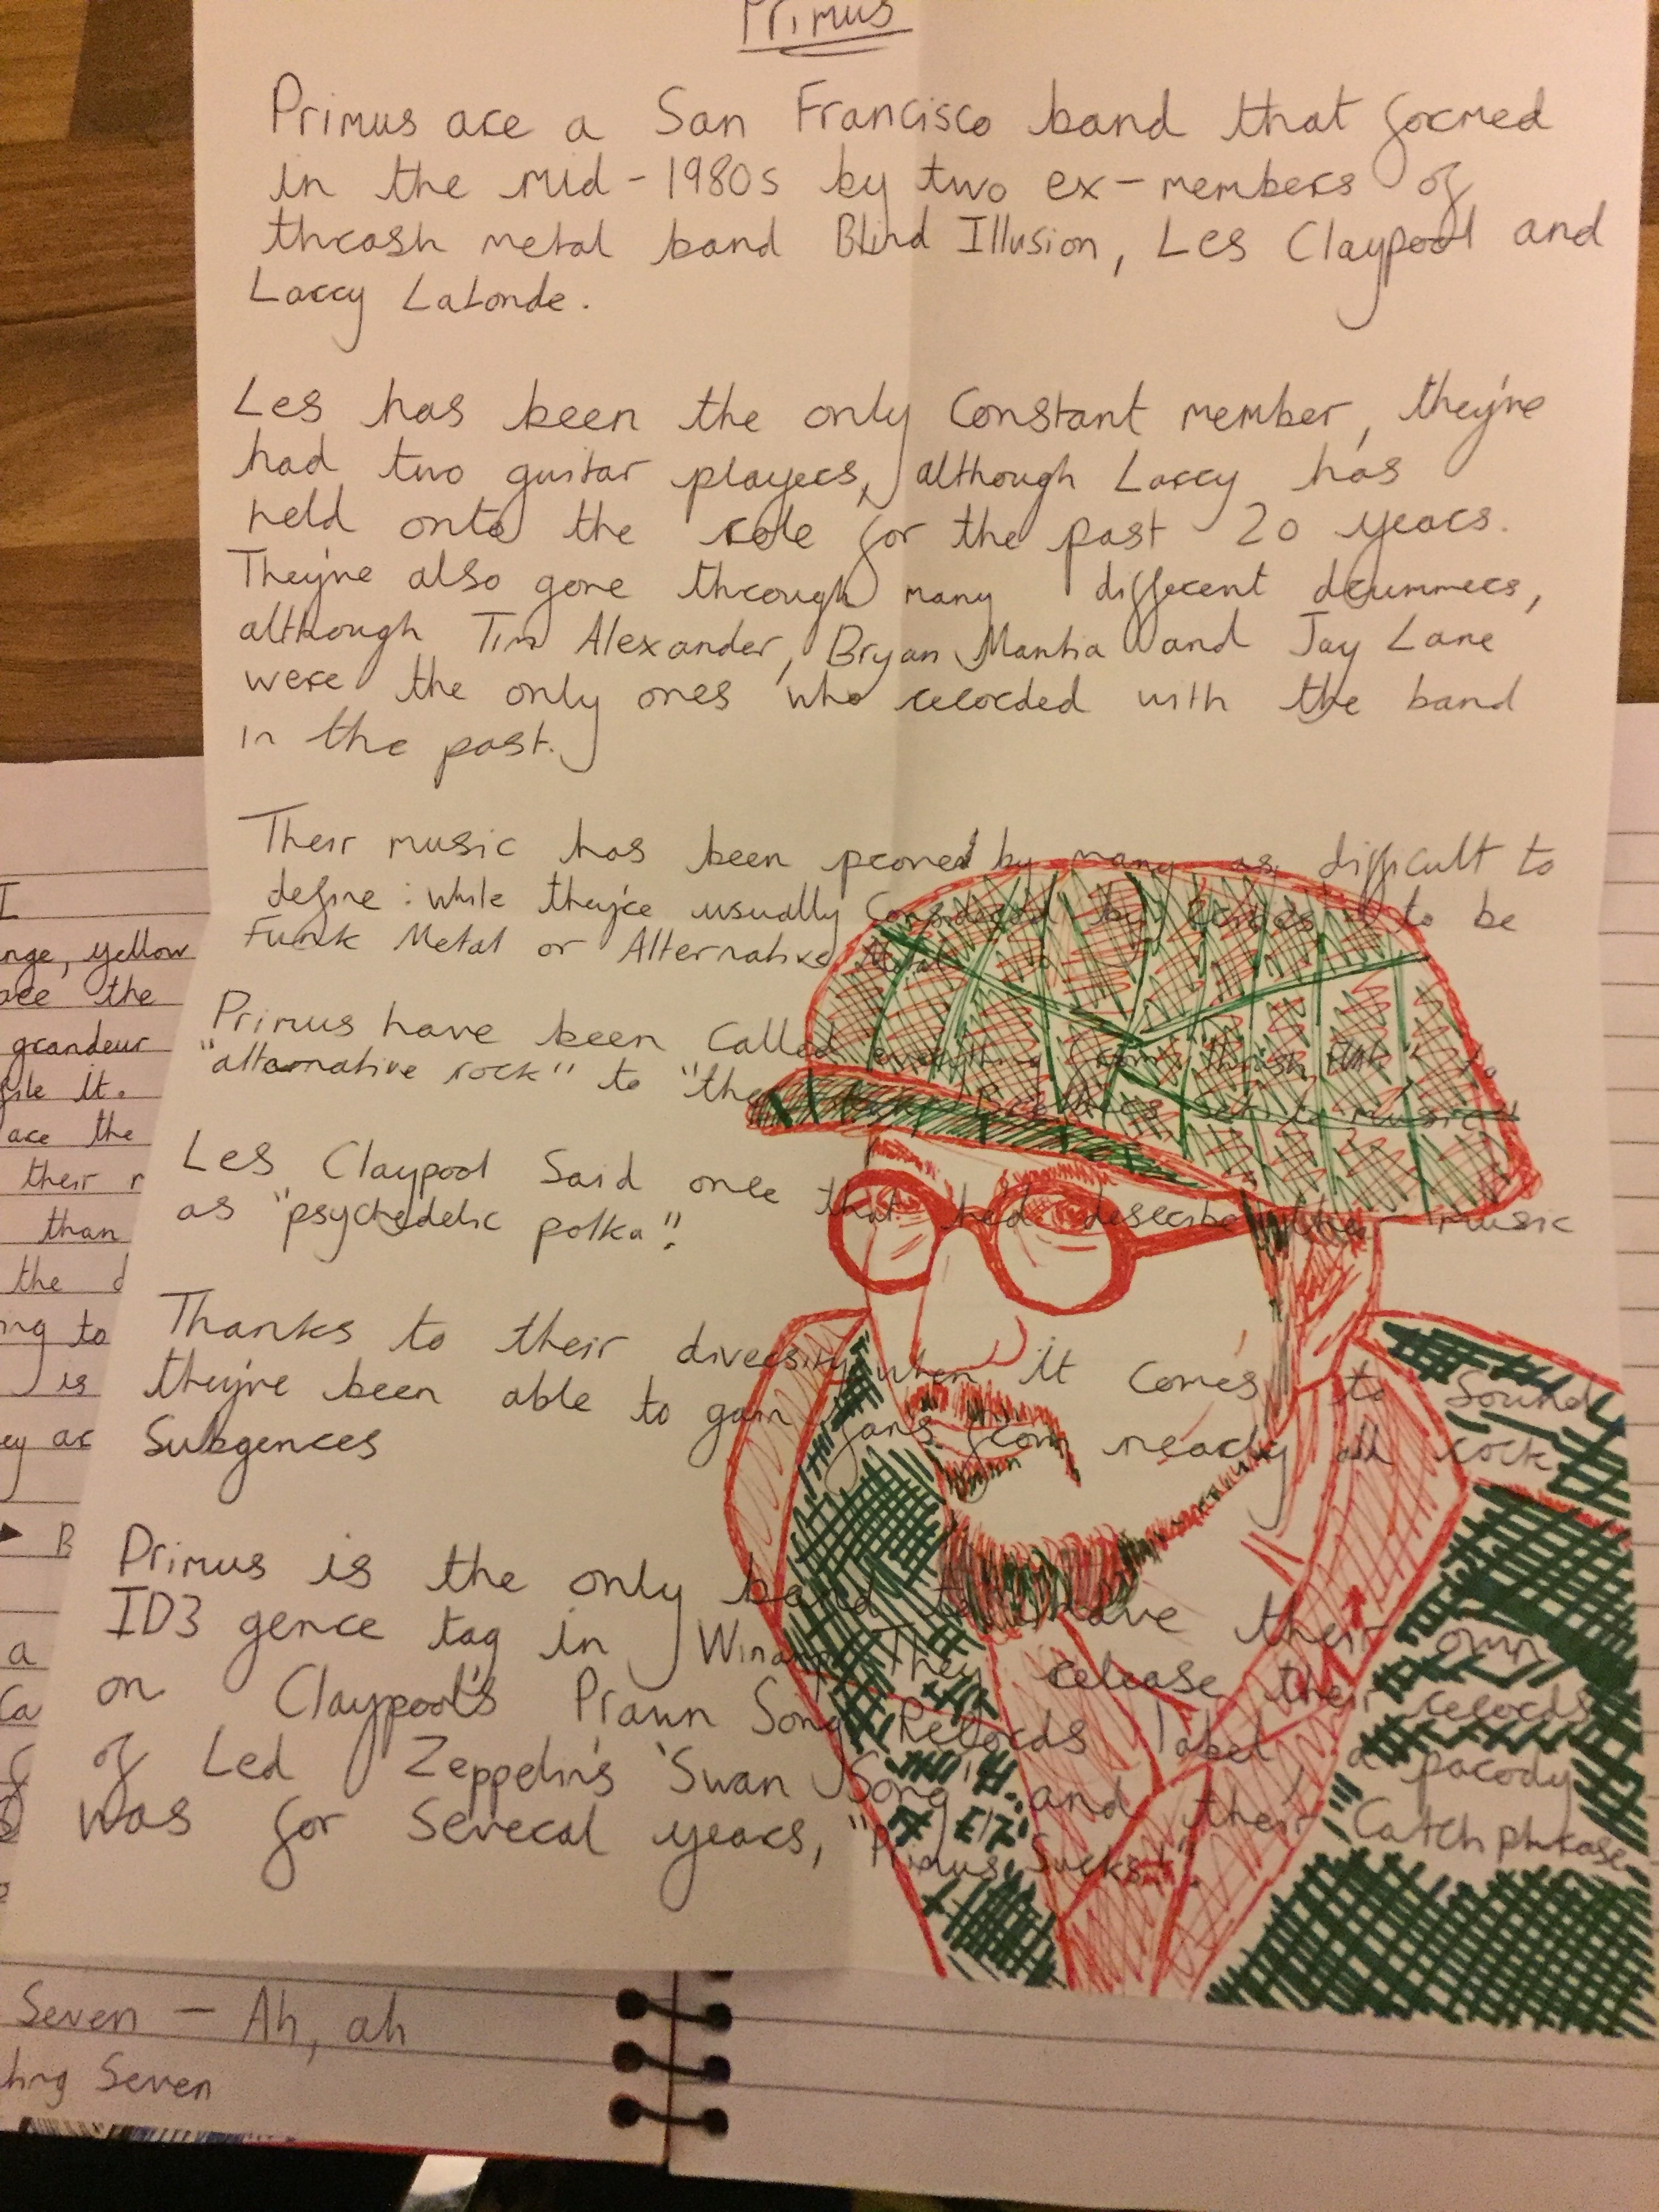 Primus
Primus are a San Francisco band that formed
in the mid-1980s by two ex-members of
thrash metal band Blind Illusion, Les Claypool and
Larry LaLonde.
Les has been the only Constant member, they've
had two guitar players, although Larry has
held onto the role for the past 20 years.
They've also gone through many different drummers,
although Tim Alexander, Bryan Mantia and Jay Lane
were the only ones who recorded with the band
in the past.
Their music has been proved by many as difficult to
define: while they're usually Considered by to be
Funk Metal or Alternative Metal
Primus have been Called from "thrash funk" to
"alternative rock" to "the set to music"
Les Claypool Said once that he'd describe their music
as "psychedelic polka".
Thanks to their diversity when it Comes to Sound
they've been able to gain fans from nearly all rock
Subgenres
Primus is the only band to have their own
ID3 genre tag in Winamp. They release their records
on Claypool's Prawn Song Records label, a parody
of Led Zeppelin's 'Swan Song' and their Catchphrase
was for Several years, "Primus Sucks!".
I
nge, yellow
the
grandeur
file it.
are the
their
than
the
ng to
is
B
a
Seven - Ah, ah
Seven